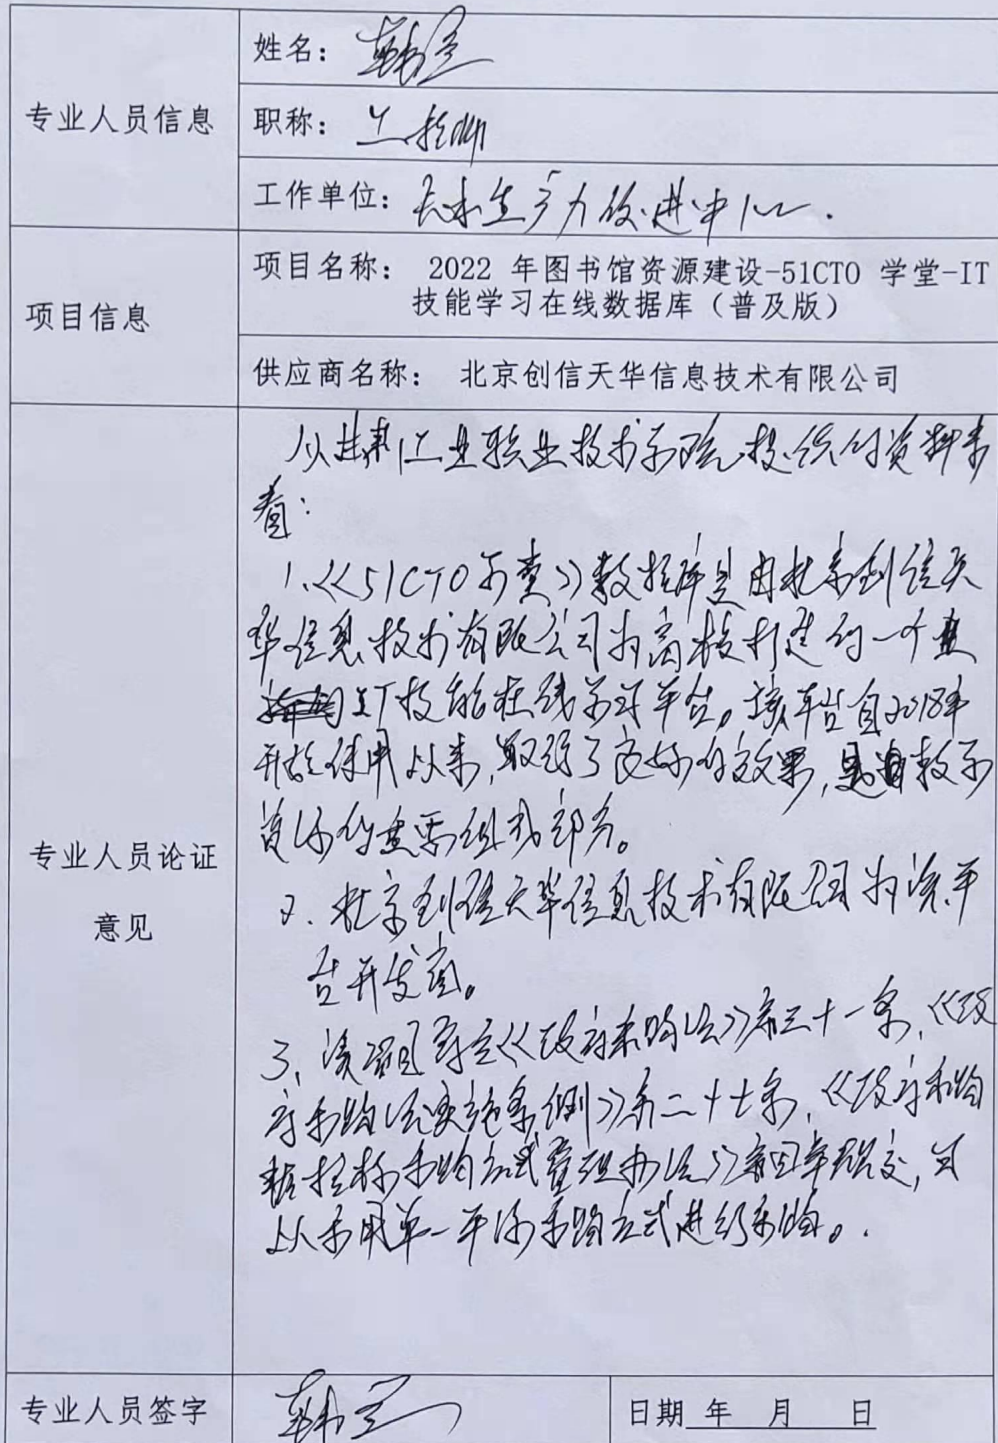 专业人员信息
姓名：韩
职称：工程师
工作单位：天水生产力促进中心.
项目信息
项目名称： 2022 年图书馆资源建设-51CTO 学堂-IT
技能学习在线数据库（普及版）
供应商名称： 北京创信天华信息技术有限公司
专业人员论证
意见
从甘肃工业职业技术学院提供的资料来
看：
1.《51CTO学堂》数据库是由北京创信天
华信息技术有限公司为高校打造的一个
IT技能在线学习平台。该平台自2018年
开始使用以来，取得了良好的效果，是教学
资源的重要组成部分。
2. 北京创信天华信息技术有限公司为该平
台开发商。
3、该项目符合《政府采购法》第三十一条，《政
府采购法实施条例》第二十七条，《政府采购
非招标采购方式管理办法》第四章规定，可
以采用单一来源采购方式进行采购。
专业人员签字
韩
日期 年 月 日